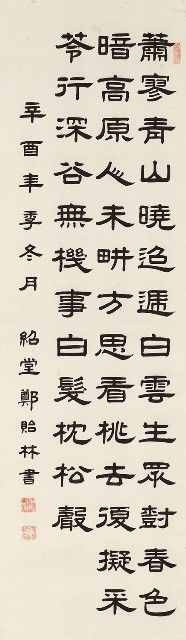 蕭寥青山曉迢遞白雲生眾尌春色
暗高原人未畊方思看桃去復擬采
苓行深谷無機事白髮枕松聲
辛酉年季冬月 紹堂鄭貽林書